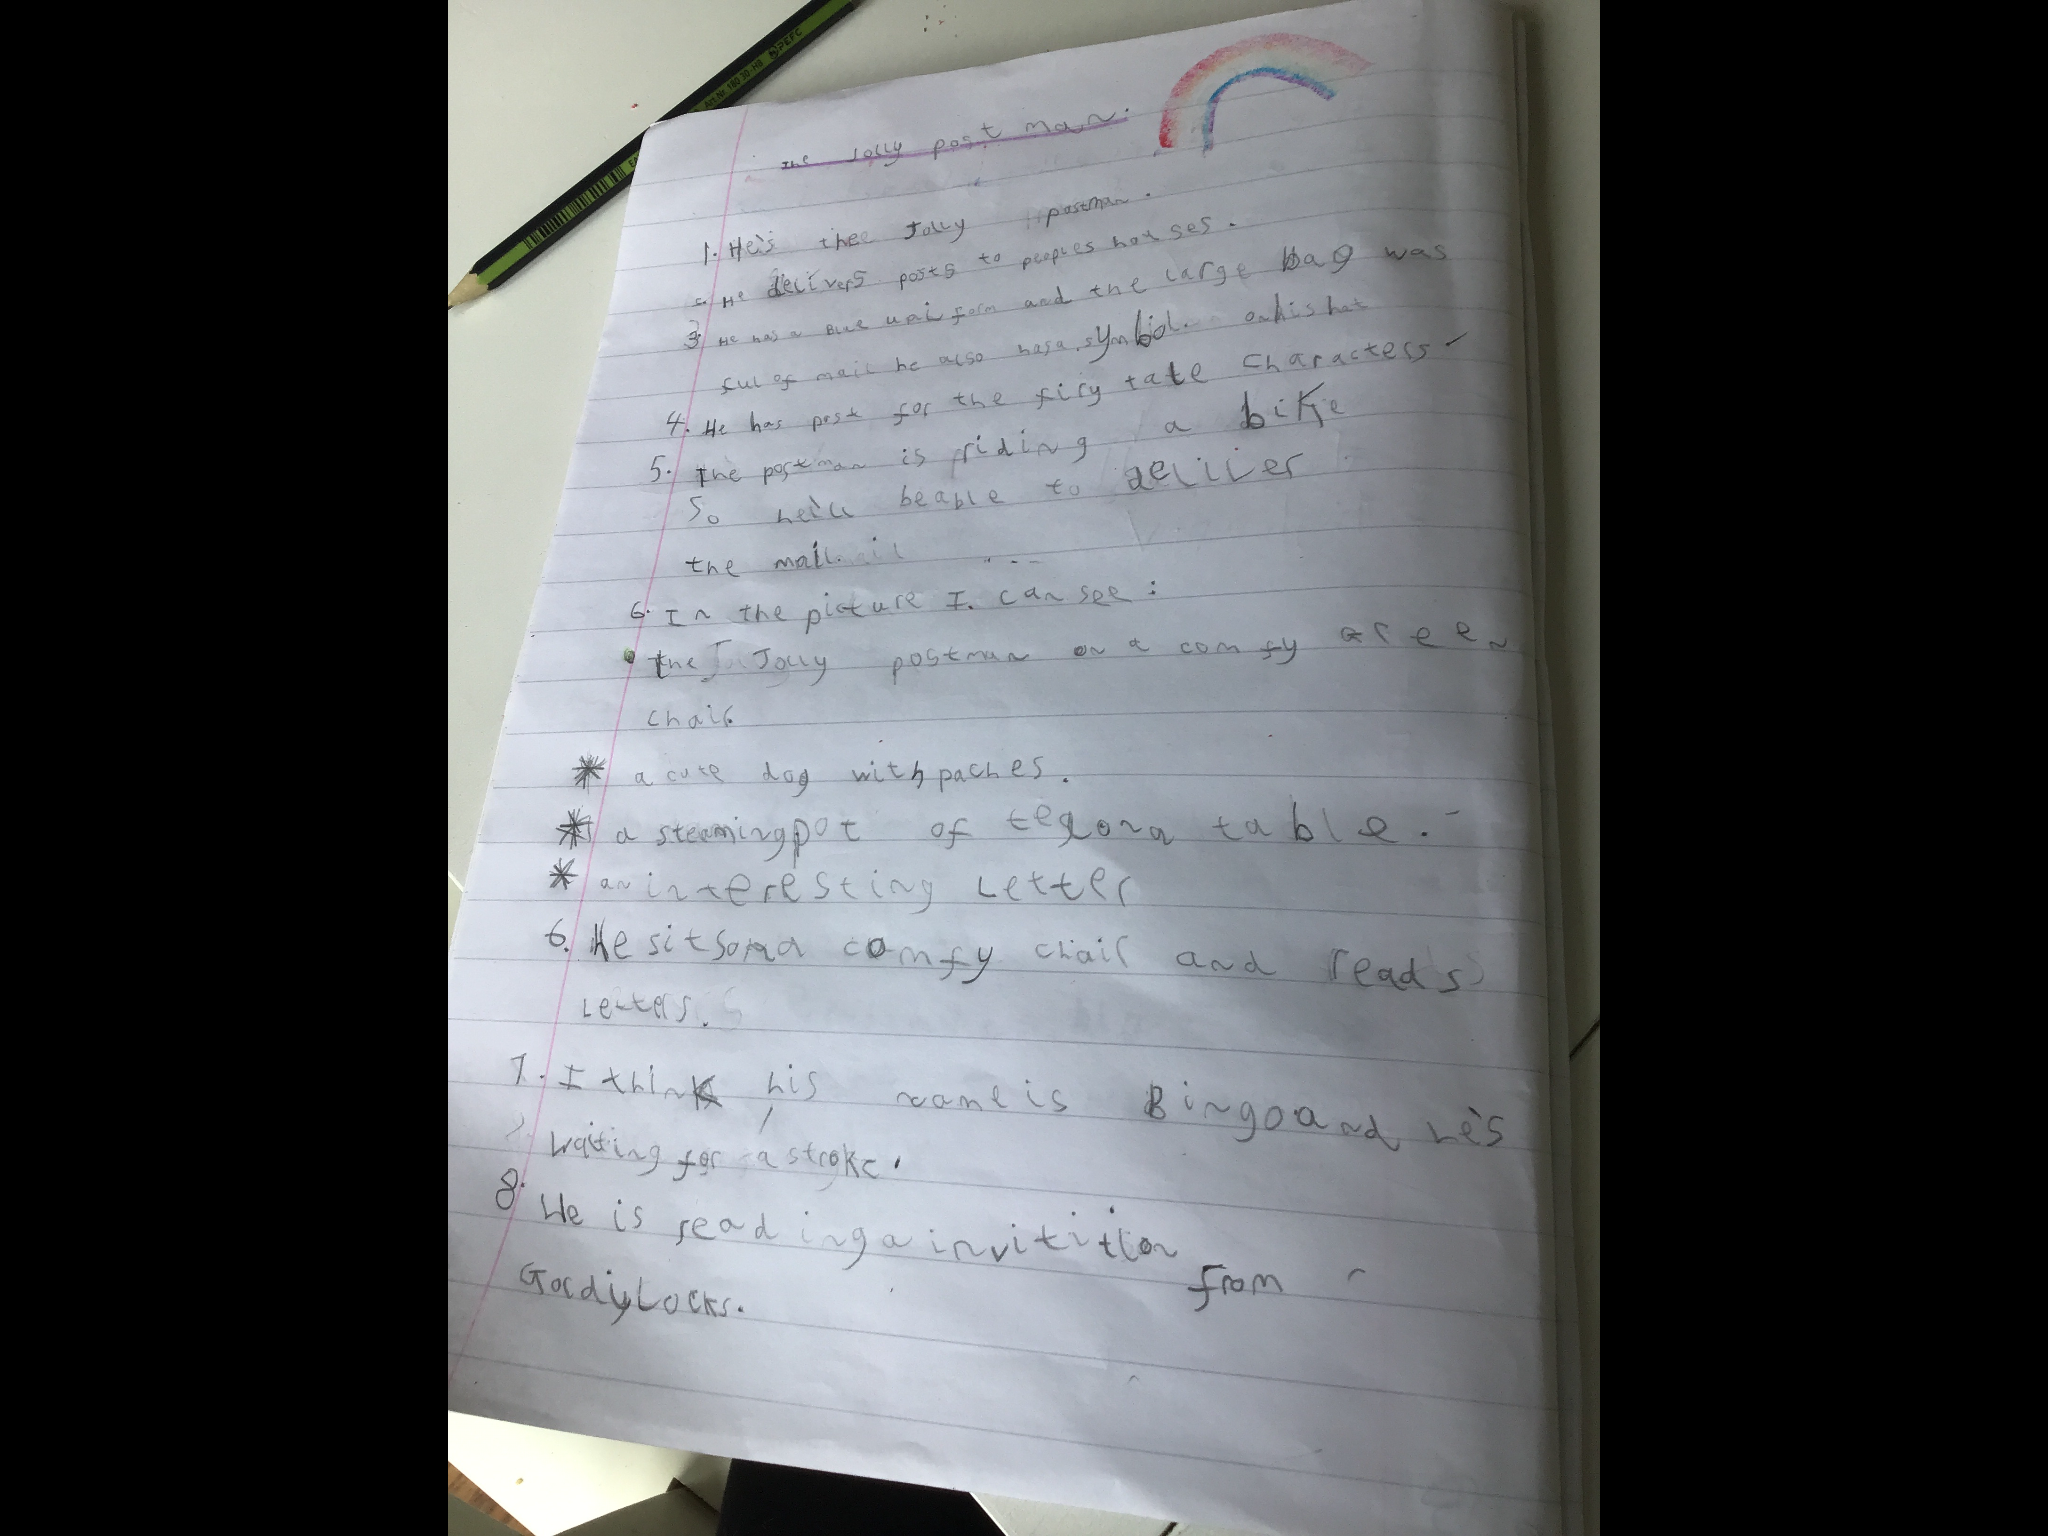 The Jolly post man.
1. He's thee Jolly postman.
He delivers posts to peoples houses.
3. He has a Blue uniform and the large bag was
ful of mail he also hasa symbol. on his hat
4. He has post for the firy tale characters
5. The postman is riding a bike
So he'll beable to deliver
the mail.
6. In the picture I. can see:
• the Jolly postman on a comfy Green
chair.
* a cute dog with paches.
* a steamingpot of teaona table.
* an interesting Letter
6. He sitsona comfy chair and reads
Letters.
7. I think his nameis Bingoand he's
waiting for a stroke.
8. He is readinga invitition
from
GoldiyLocks.
PEFC